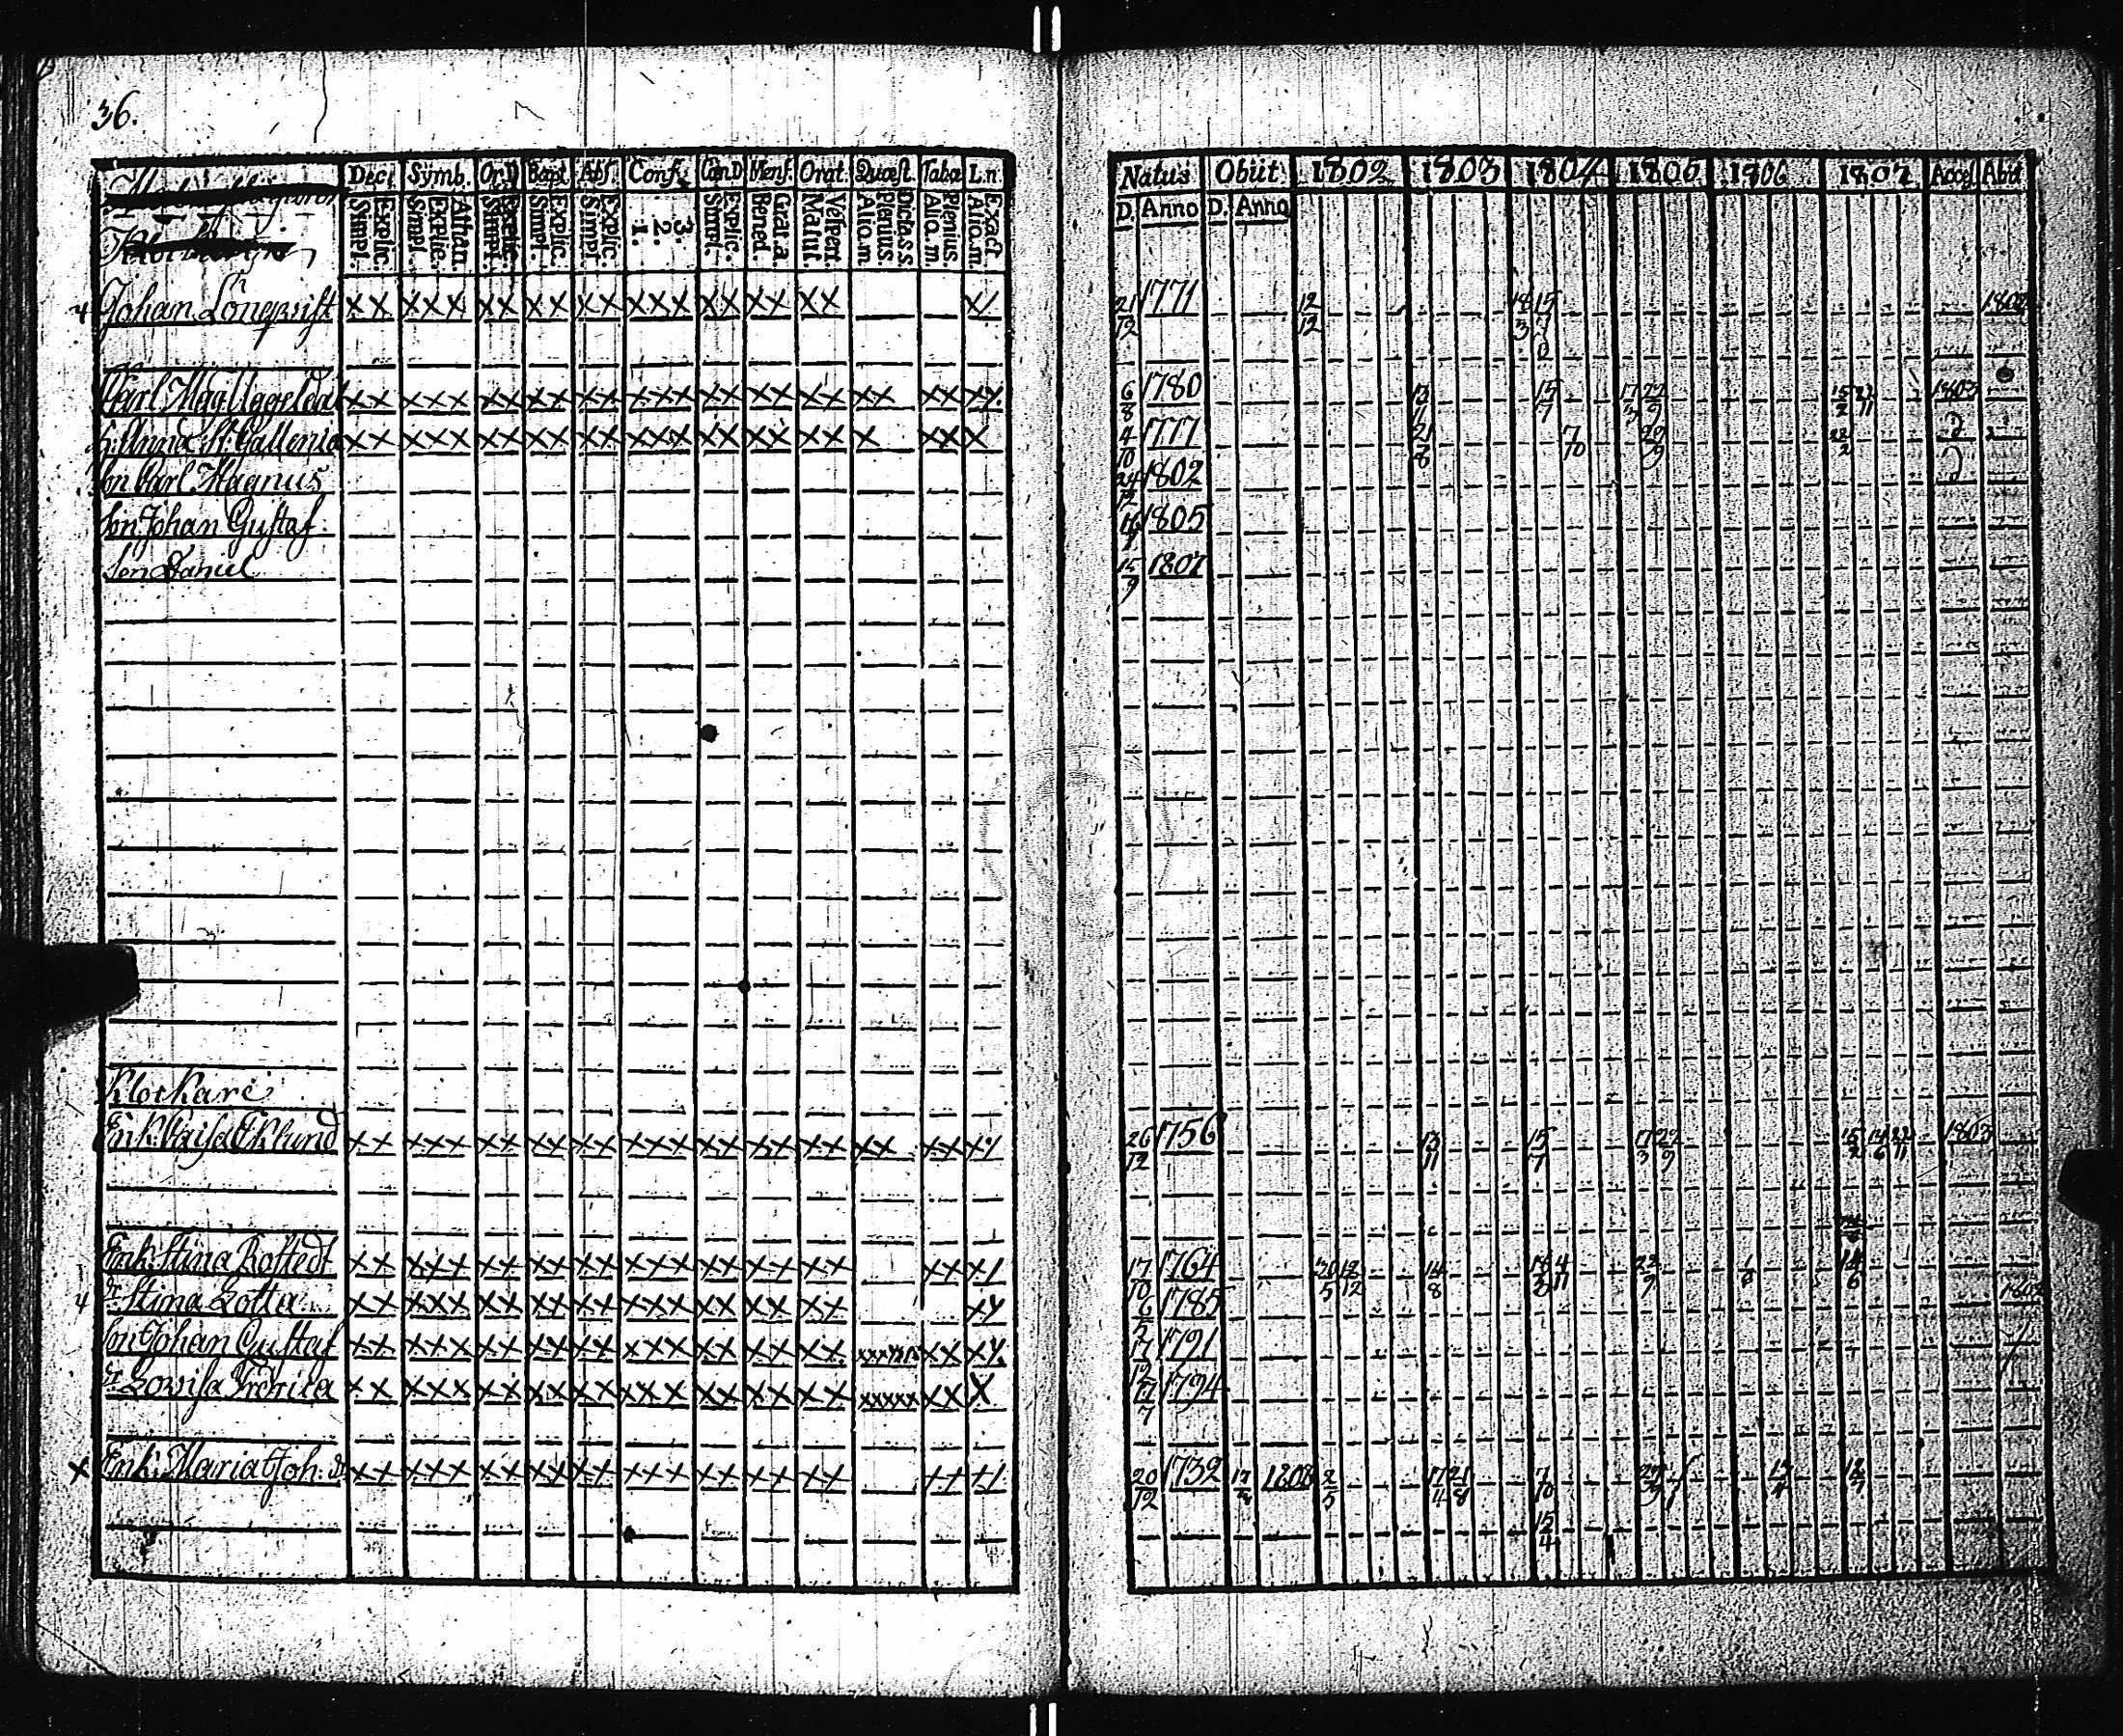 36.
Dec. Symb. Or.D Bapt. Abs. Conf. Cœn.D Mens. Orat. Quæst. Taba L.n.
Explic. Simpl. Athan. Explic. Simpl. Explic. Simpl. Explic. Simpl. Explic. Simpl. 3. 2. 1. Explic. Simpl. Grat. a. Bened. Vespert. Matut. Dicta s.s. Plenius. Aliq.m. Plenius. Aliq.m. Exact. Aliq.m.
Natus Obiit 1802 1803 1804 1805 1806 1807 Acces. Abit
D. Anno D. Anno
Johan Lönqvist xx xxx xx xx xx xxx xx xx xx 21/12 1771 12/12
Carl Mag. xx xxx xx xx xx xxx xx xx xx xx xx 6/8 1780 15/7 17/3 22/9 1803
h. Anna St. Gallenia xx xxx xx xx xx xxx xx xx xx x xx x 4/10 1777 21/8 7/10 29/9 22/2
Son Carl Magnus 24/12 1802
Son Johan Gustaf 1805
Son Daniel 15/9 1807
Klockare
Enk. Caisa Eklund xx xxx xx xx xx xxx xx xx xx xx xx 26/12 1756 13/11 15/7 17/3 22/9 15/2 14/6 22/11 1803
Enk. Stina Bostedt xx xxx xx xx xx xxx xx xx xx xx 17/10 1764 30/5 18/12 14/8 22/9 14/6
dr. Stina Lotta xx xxx xx xx xx xxx xx xx xx 6/2 1785
Son Johan Gustaf xx xxx xx xx xx xxx xx xx xx xx 17/12 1791
dr. Lovisa Fredrica xx xxx xx xx xx xxx xx xx xx xxxxx xx x 1794
x Enk. Maria Joh. d. xx xxx xx xx xx xxx xx xx xx xx 20/12 1732 1808 2/5 17/4 21/8 7/10
15/4